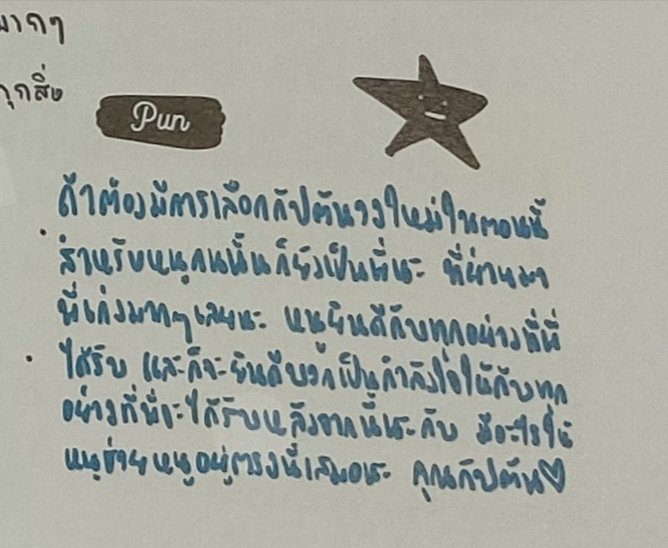 มากๆ
ทุกสิ่ง
Pun
ถ้าต้องมีการเลือกกัปตันวงใหม่ในตอนนี้
สำหรับหนูคนนั้นก็ยังเป็นพี่นะ ที่ผ่านมา
พี่เก่งมากๆเลยนะ หนูยินดีกับทุกอย่างที่พี่
ได้รับ และก็จะยินดีบวกเป็นกำลังใจให้กับทุก
อย่างที่พี่จะได้รับหลังจากนี้นะคับ มีอะไรให้
หนูช่วยหนูอยู่ตรงนี้เสมอนะ คุณกัปตัน♡